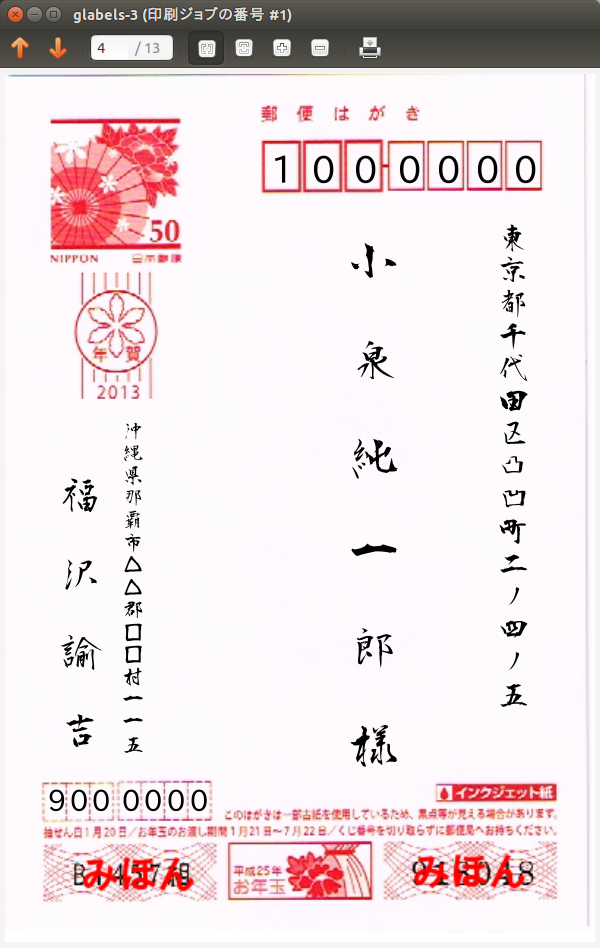 glabels-3 (印刷ジョブの番号 #1)
4 / 13
郵便はがき
100-0000
50
NIPPON 日本郵便
年賀
2013
東京都千代田区凸凹町二ノ四ノ五
小泉純一郎様
沖縄県那覇市△△郡□□村一一五
福沢諭吉
900 0000
インクジェット紙
このはがきは一部古紙を使用しているため、黒点等が見える場合があります。
抽せん日1月20日/お年玉のお渡し期間1月21日~7月22日/くじ番号を切り取らずに郵便局へお持ちください。
みほん
平成25年
お年玉
みほん